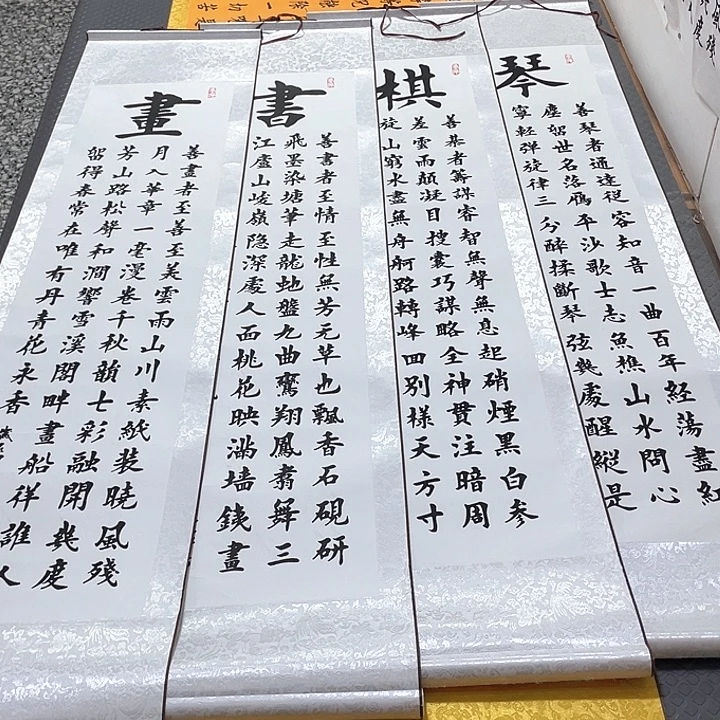 琴
善琴者通達從容知音一曲百年經蕩盡紅
塵留世名落雁平沙歌士志魚樵山水問心
寧輕彈旋律三分醉揉斷琴弦幾處醒縱是
棋
善棊者籌謀睿智無聲無息起硝煙黑白参
差雲雨顛凝目搜囊巧謀略全神貫注暗周
旋山窮水盡無舟舸路轉峰回別樣天方寸
書
善書者至情至性無芳无草也飄香石硯研
飛墨染塘筆走龍虵盤九曲鸞翔鳳翥舞三
江廬山峻嶺隐深處人面桃花映滿墙銕畫
畫
善畫者至善至美雲雨山川素紙装曉風殘
月入華章一毫漫卷千秋韻七彩融開幾度
芳山路松聲和澗響雪溪閣畔畫船徉誰人
留得春常在唯有丹青花永香